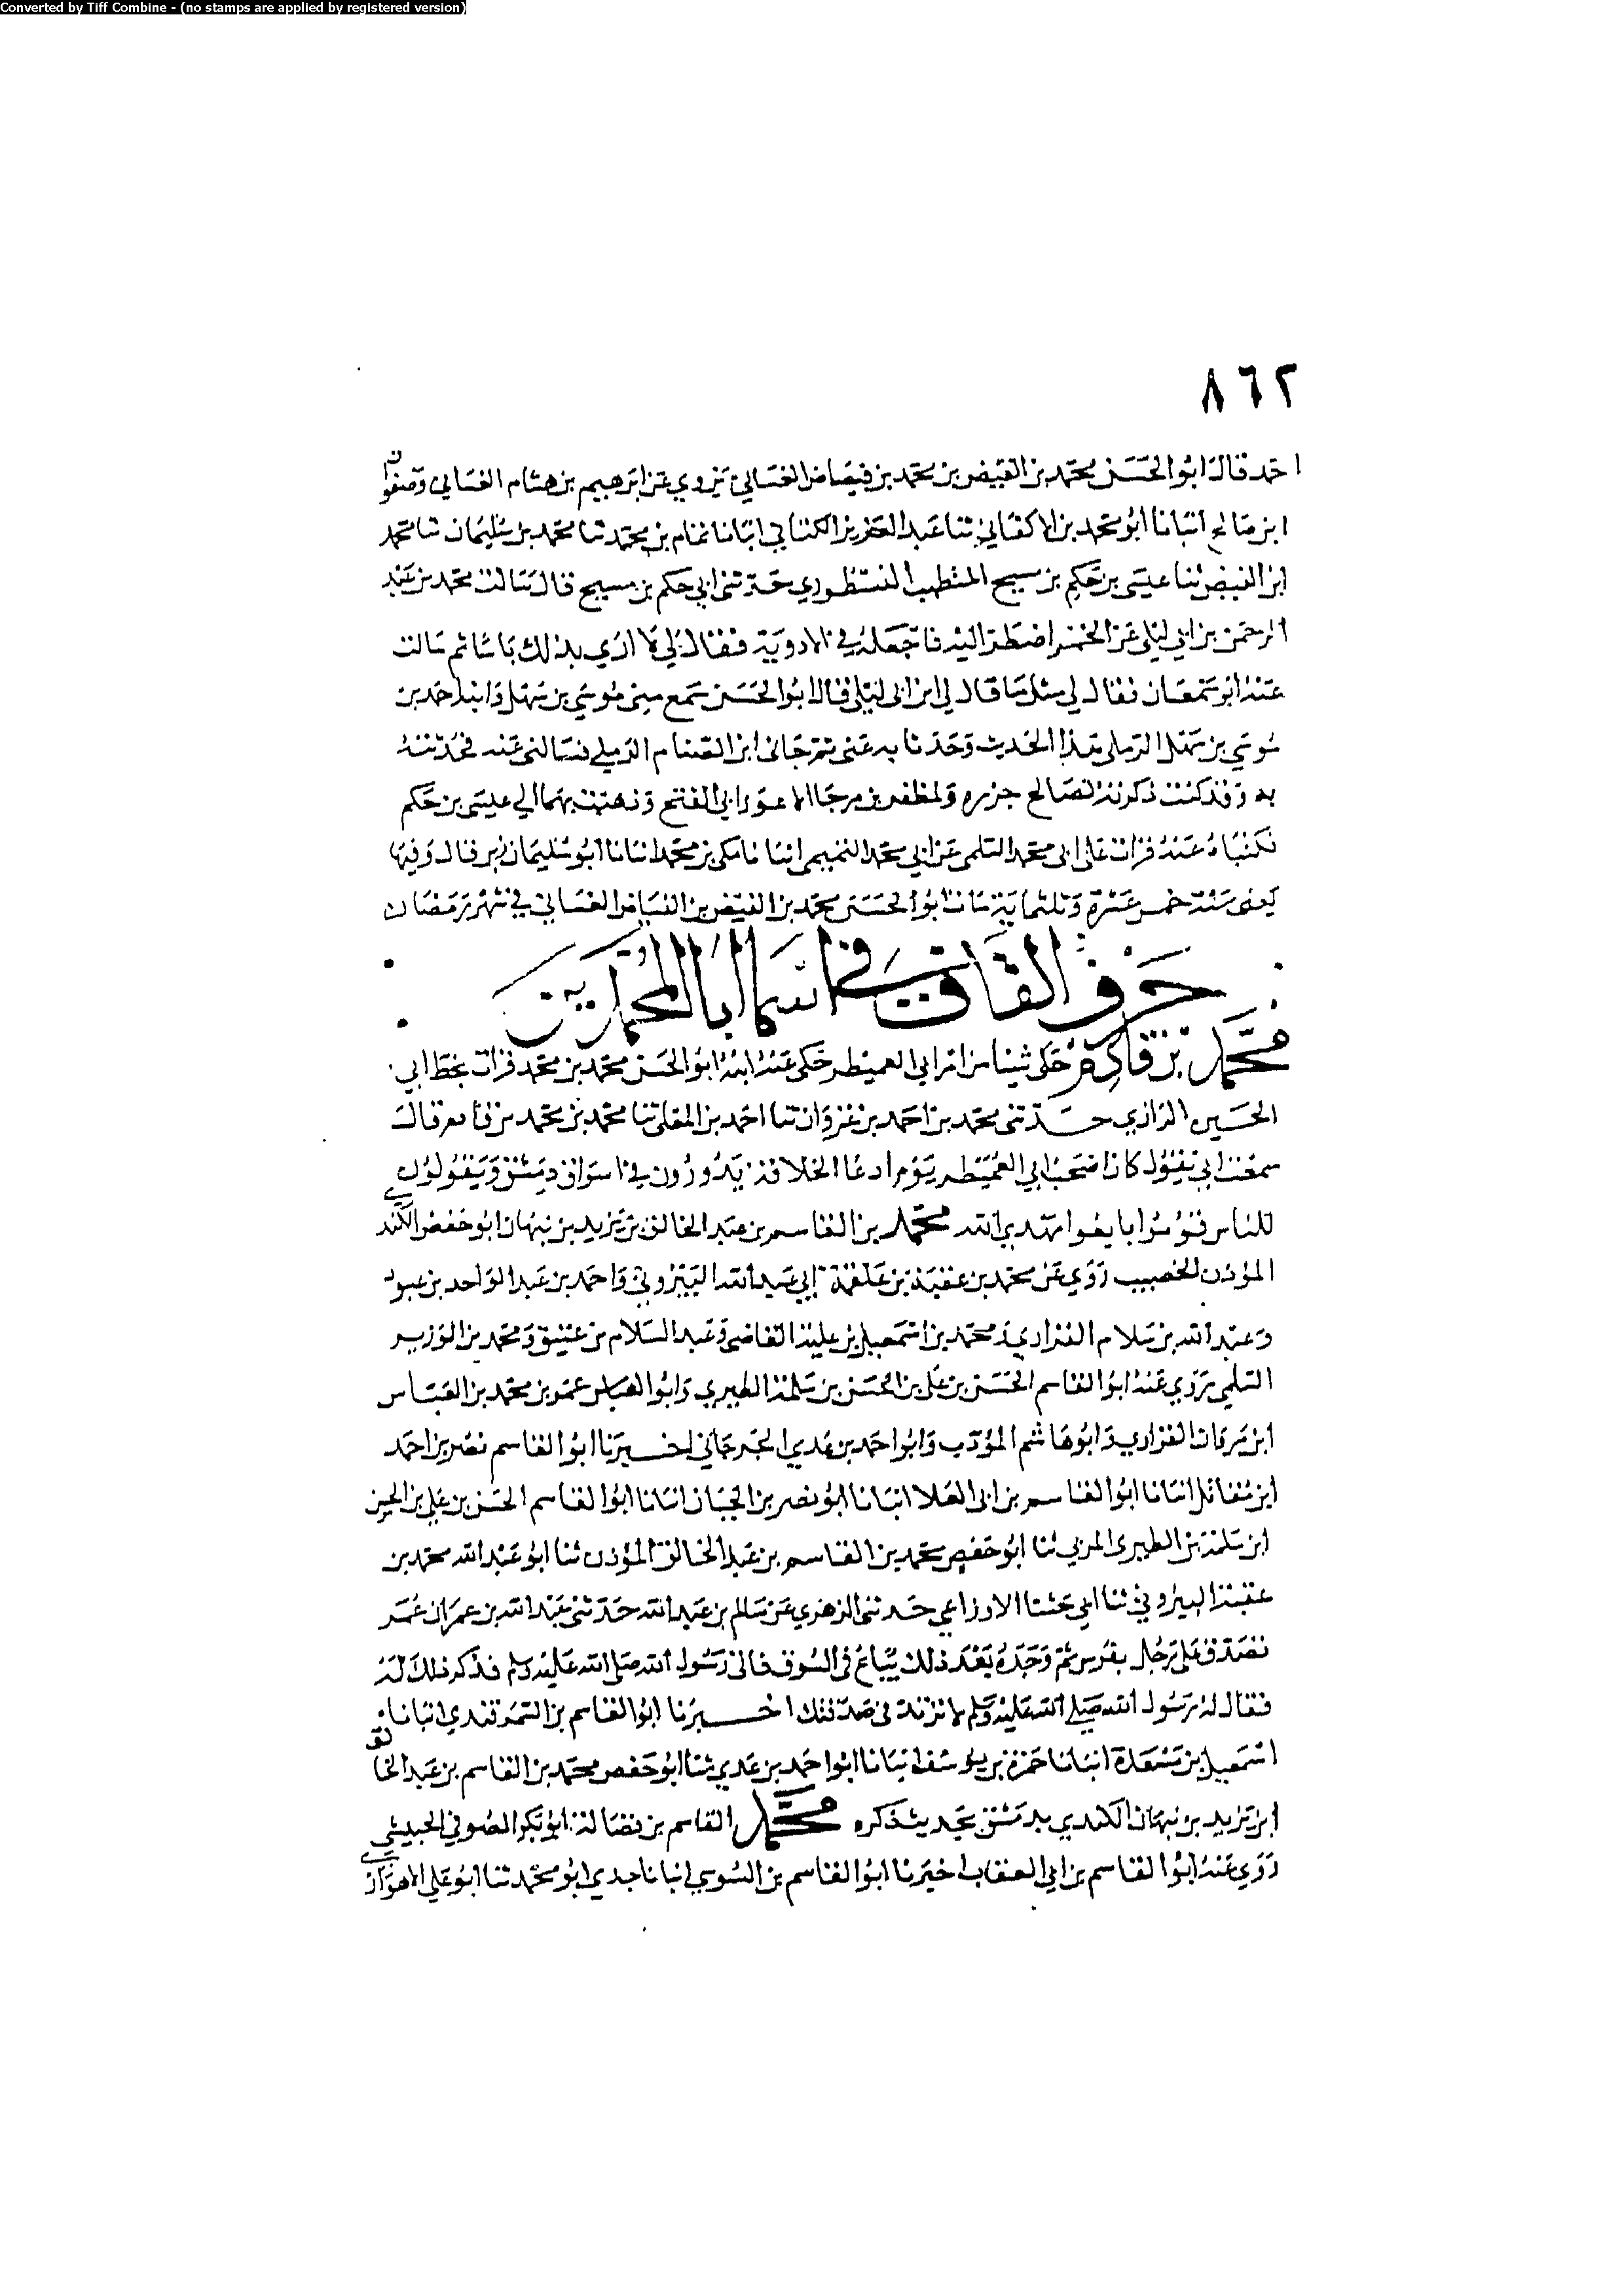 Converted by Tiff Combine - (no stamps are applied by registered version)
٨٦٢
احمد قال ابو الحسن محمد بن الفيض بن محمد بن فياض الغساني يروي عن ابرهيم بن هشام الغساني وصفوان
ابن صالح انبانا ابو محمد بن الاكفاني ثنا عبد العزيز الكتاني انبانا تمام بن محمد ثنا محمد بن سليمان ثنا محمد
ابن الفيض ثنا عيسى بن حكيم بن مسيح المتطبب النسطوري حدثنى ابي حكم بن مسيح قال سالت محمد بن عبد
الرحمن بن ابي ليلى عن الخمر اضطر اليه فاجعله في الادوية فقال لي لا اري بذلك باسا ثم سالت
عنه ابو سمعان فقال لي مثل ما قال لي ابن ابى ليلى قال ابو الحسن سمع منى موسي بن سهل وابنه احمد بن
موسي بن سهل الرملى هذا الحديث وحدثا به عنى ثم جانى ابن القمقام الرملي فسالنى عنه فحدثته
به وقد كنت ذكرته لصالح جزره ولمظفر بن مرجا الاعور ابي الفتح وذهبت بهما الي عيسى بن حكم
فكتباه عنه قرات على ابى محمد السلمى عن ابي محمد التميمي انبا نا مكى بن محمد انبانا ابو سليمان بن زبر قال وفيها
يعنى سنة خمس عشرة وثلثماية مات ابو الحسن محمد بن الفيض بن الفياض الغساني في شهر رمضان
حرف القاف في اسما ابا المحمدين
محمد بن قادم حكى شيئا من امر ابي العميطر حكى عنه ابنه ابو الحسن محمد بن محمد قرات بخط ابي
الحسين الرازي حدثنى محمد بن احمد بن غزوان ثنا احمد بن المعلى ثنا محمد بن محمد بن قادم قال
سمعت ابي يقول كان اصحاب ابي العميطر يوم ادعا الخلافة يدورون في اسواق دمشق ويقولون
للناس قوموا بايعوا مهدي الله محمد بن القاسم بن عبد الخالق بن يزيد بن نبهان ابو حفص الكندي
المؤذن الخصيب روي عن محمد بن عقبة بن علقمة ابي عبد الله البيروتي واحمد بن عبد الواحد بن عبود
وعبد الله بن سلام الفزاري ومحمد بن اسمعيل بن علية القاضى وعبد السلام بن عتيق ومحمد بن الوزير
السلمي روي عنه ابو القاسم الحسن بن علي بن الحسن بن سلمة الطبري وابو العباس عمر بن محمد بن العباس
ابن مروان الفزاري وابو هاشم المؤدب وابو احمد بن عدي الجرجاني اخبرنا ابو القاسم نصر بن احمد
ابن مقاتل انبانا ابو القاسم بن ابى العلا انبانا ابو نصر بن الجبان انبانا ابو القاسم الحسن بن علي بن الحسن
ابن سلمة بن الطبرى المزني ثنا ابو حفص محمد بن القاسم بن عبد الخالق المؤذن ثنا ابو عبد الله محمد بن
عقبة البيروتي ثنا ابي حدثنا الاوزاعي حدثنى الزهري عن سالم بن عبد الله حدثنى عبد الله بن عمر ان عمر
تصدق على رجل بفرس ثم وجده بعد ذلك يباع في السوق فاتى رسول الله صلى الله عليه وسلم فذكر ذلك له
فقال له رسول الله صلى الله عليه وسلم لا ترتد في صدقتك اخبرنا ابو القاسم بن السمرقندي انبانا
اسمعيل بن مسعدة انبانا حمزة بن يوسف انبانا ابو احمد بن عدي ثنا ابو حفص محمد بن القاسم بن عبد الخالق
ابن يزيد بن نبهان الكندي بدمشق بحديث ذكره محمد القاسم بن فضالة ابو بكر الصوفي الحبيشي
روي عنه ابو القاسم بن ابي العقاب اخبرنا ابو القاسم بن السوسي انبانا جدي ابو محمد ثنا ابو علي الاهوازي